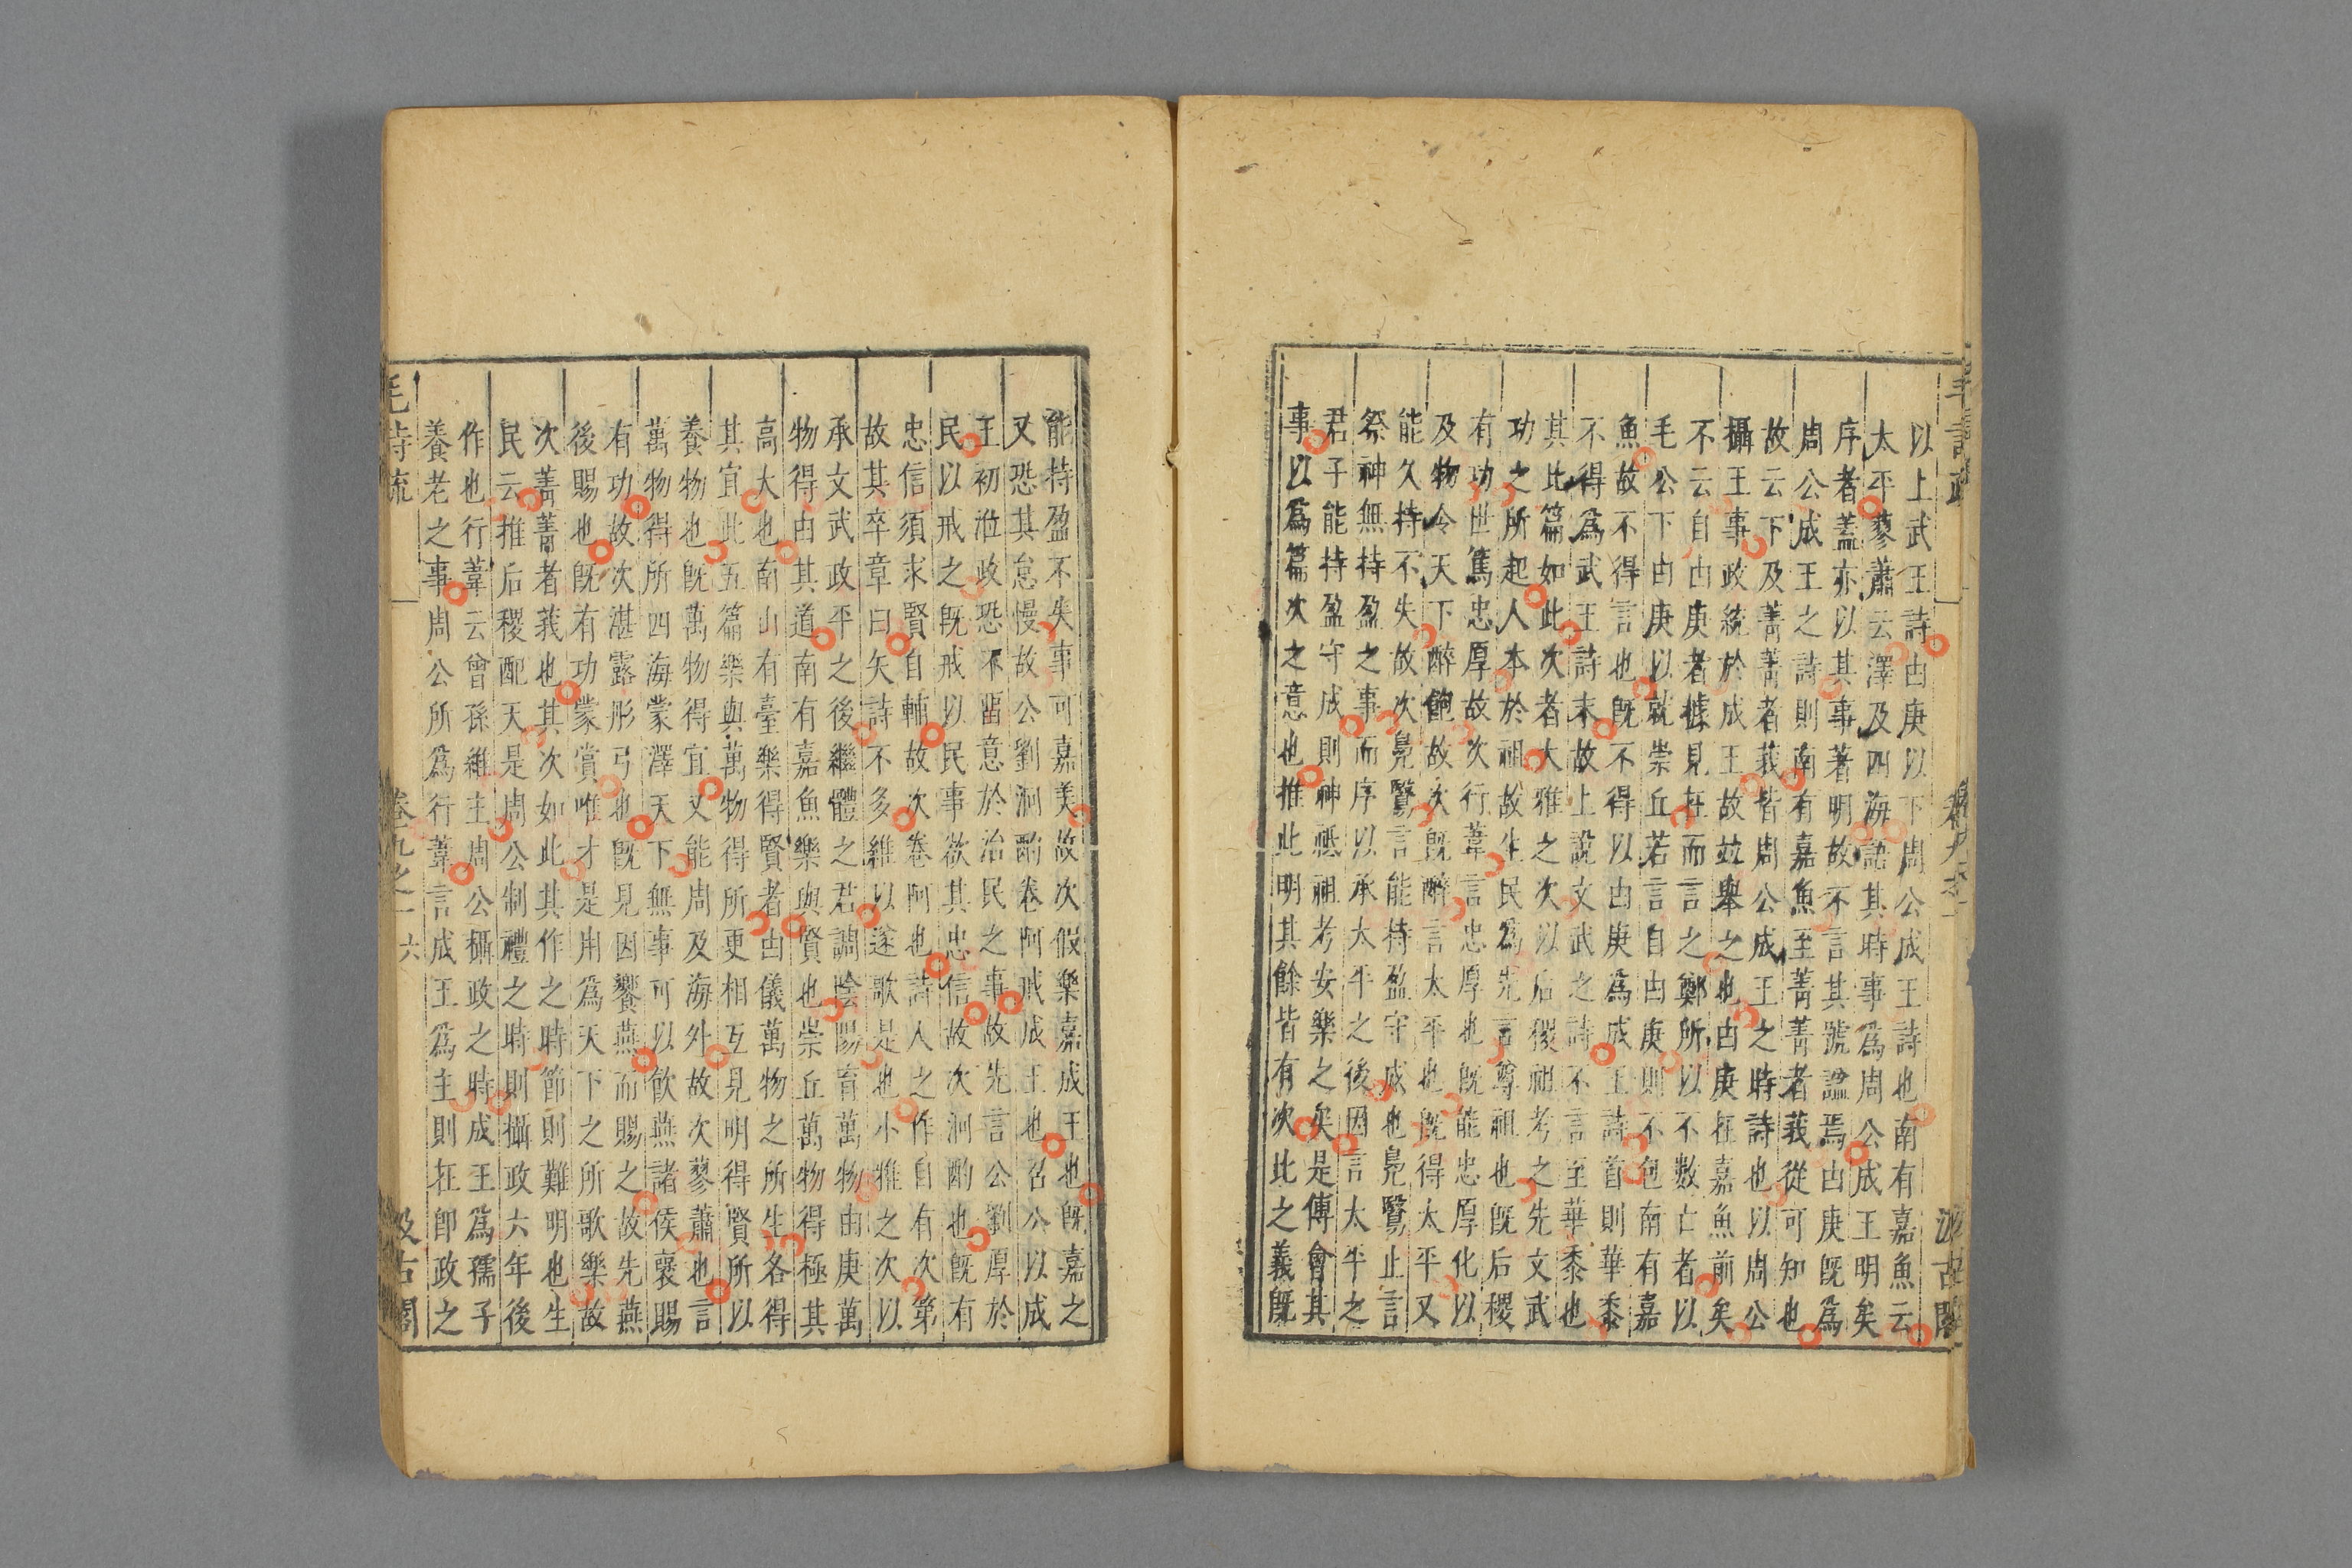 毛詩疏 卷九之一 汲古閣
以上武王詩由庚以下周公成王詩也南有嘉魚云
太平蓼蕭云澤及四海語其時事爲周公成王明矣
序者蓋亦以其事著明故不言其號諡焉由庚旣爲
周公成王之詩則南有嘉魚至菁菁者莪從可知也
故云下及菁菁者莪皆周公成王之時詩也以周公
攝王事政統於成王故竝舉之也由庚在嘉魚前矣
不云自由庚者據見在而言之鄭所以不數亡者以
毛公下由庚以就崇丘若言自由庚則不包南有嘉
魚故不得言也旣不得以由庚爲成王詩首則華黍
不得爲武王詩末故上說文武之詩不言至華黍也
其比篇如此次者大雅之次以后稷祖考之先文武
功之所起人本於祖故生民爲先言尊祖也旣后稷
有功世篤忠厚故次行葦言忠厚也旣能忠厚化以
及物令天下醉飽故次旣醉言太平也旣得太平又
能久持不失故次鳧鷖言能持盈守成也鳧鷖止言
祭神無持盈之事而序以承太平之後因言太平之
君子能持盈守成則神祗祖考安樂之矣是傅會其
事以爲篇次之意也推此明其餘皆有次比之義旣
能持盈不失事可嘉美故次假樂嘉成王也旣嘉之
又恐其怠慢故公劉泂酌卷阿戒成王也召公以成
王初涖政恐不畱意於治民之事故先言公劉厚於
民以戒之旣戒以民事欲其忠信故次泂酌也旣有
忠信須求賢自輔故次卷阿也詩人之作自有次第
故其卒章曰矢詩不多維以遂歌是也小雅之次以
承文武政平之後繼體之君調陰陽育萬物由庚萬
物得由其道南有嘉魚樂與賢也崇丘萬物得極其
高大也南山有臺樂得賢者由儀萬物之所生各得
其宜此五篇樂與萬物得所更相互見明得賢所以
養物也旣萬物得宜又能周及海外故次蓼蕭也言
萬物得所四海蒙澤天下無事可以飲燕諸侯褒賜
有功故次湛露彤弓也旣見因饗燕而賜之故先燕
後賜也旣有功蒙賞唯才是用爲天下之所歌樂故
次菁菁者莪也其次如此其作之時節則難明也生
民云推后稷配天是周公制禮之時則攝政六年後
作也行葦云曾孫維主周公攝政之時成王爲孺子
養老之事周公所爲行葦言成王爲主則在卽政之
毛詩疏 卷九之一 六 汲古閣